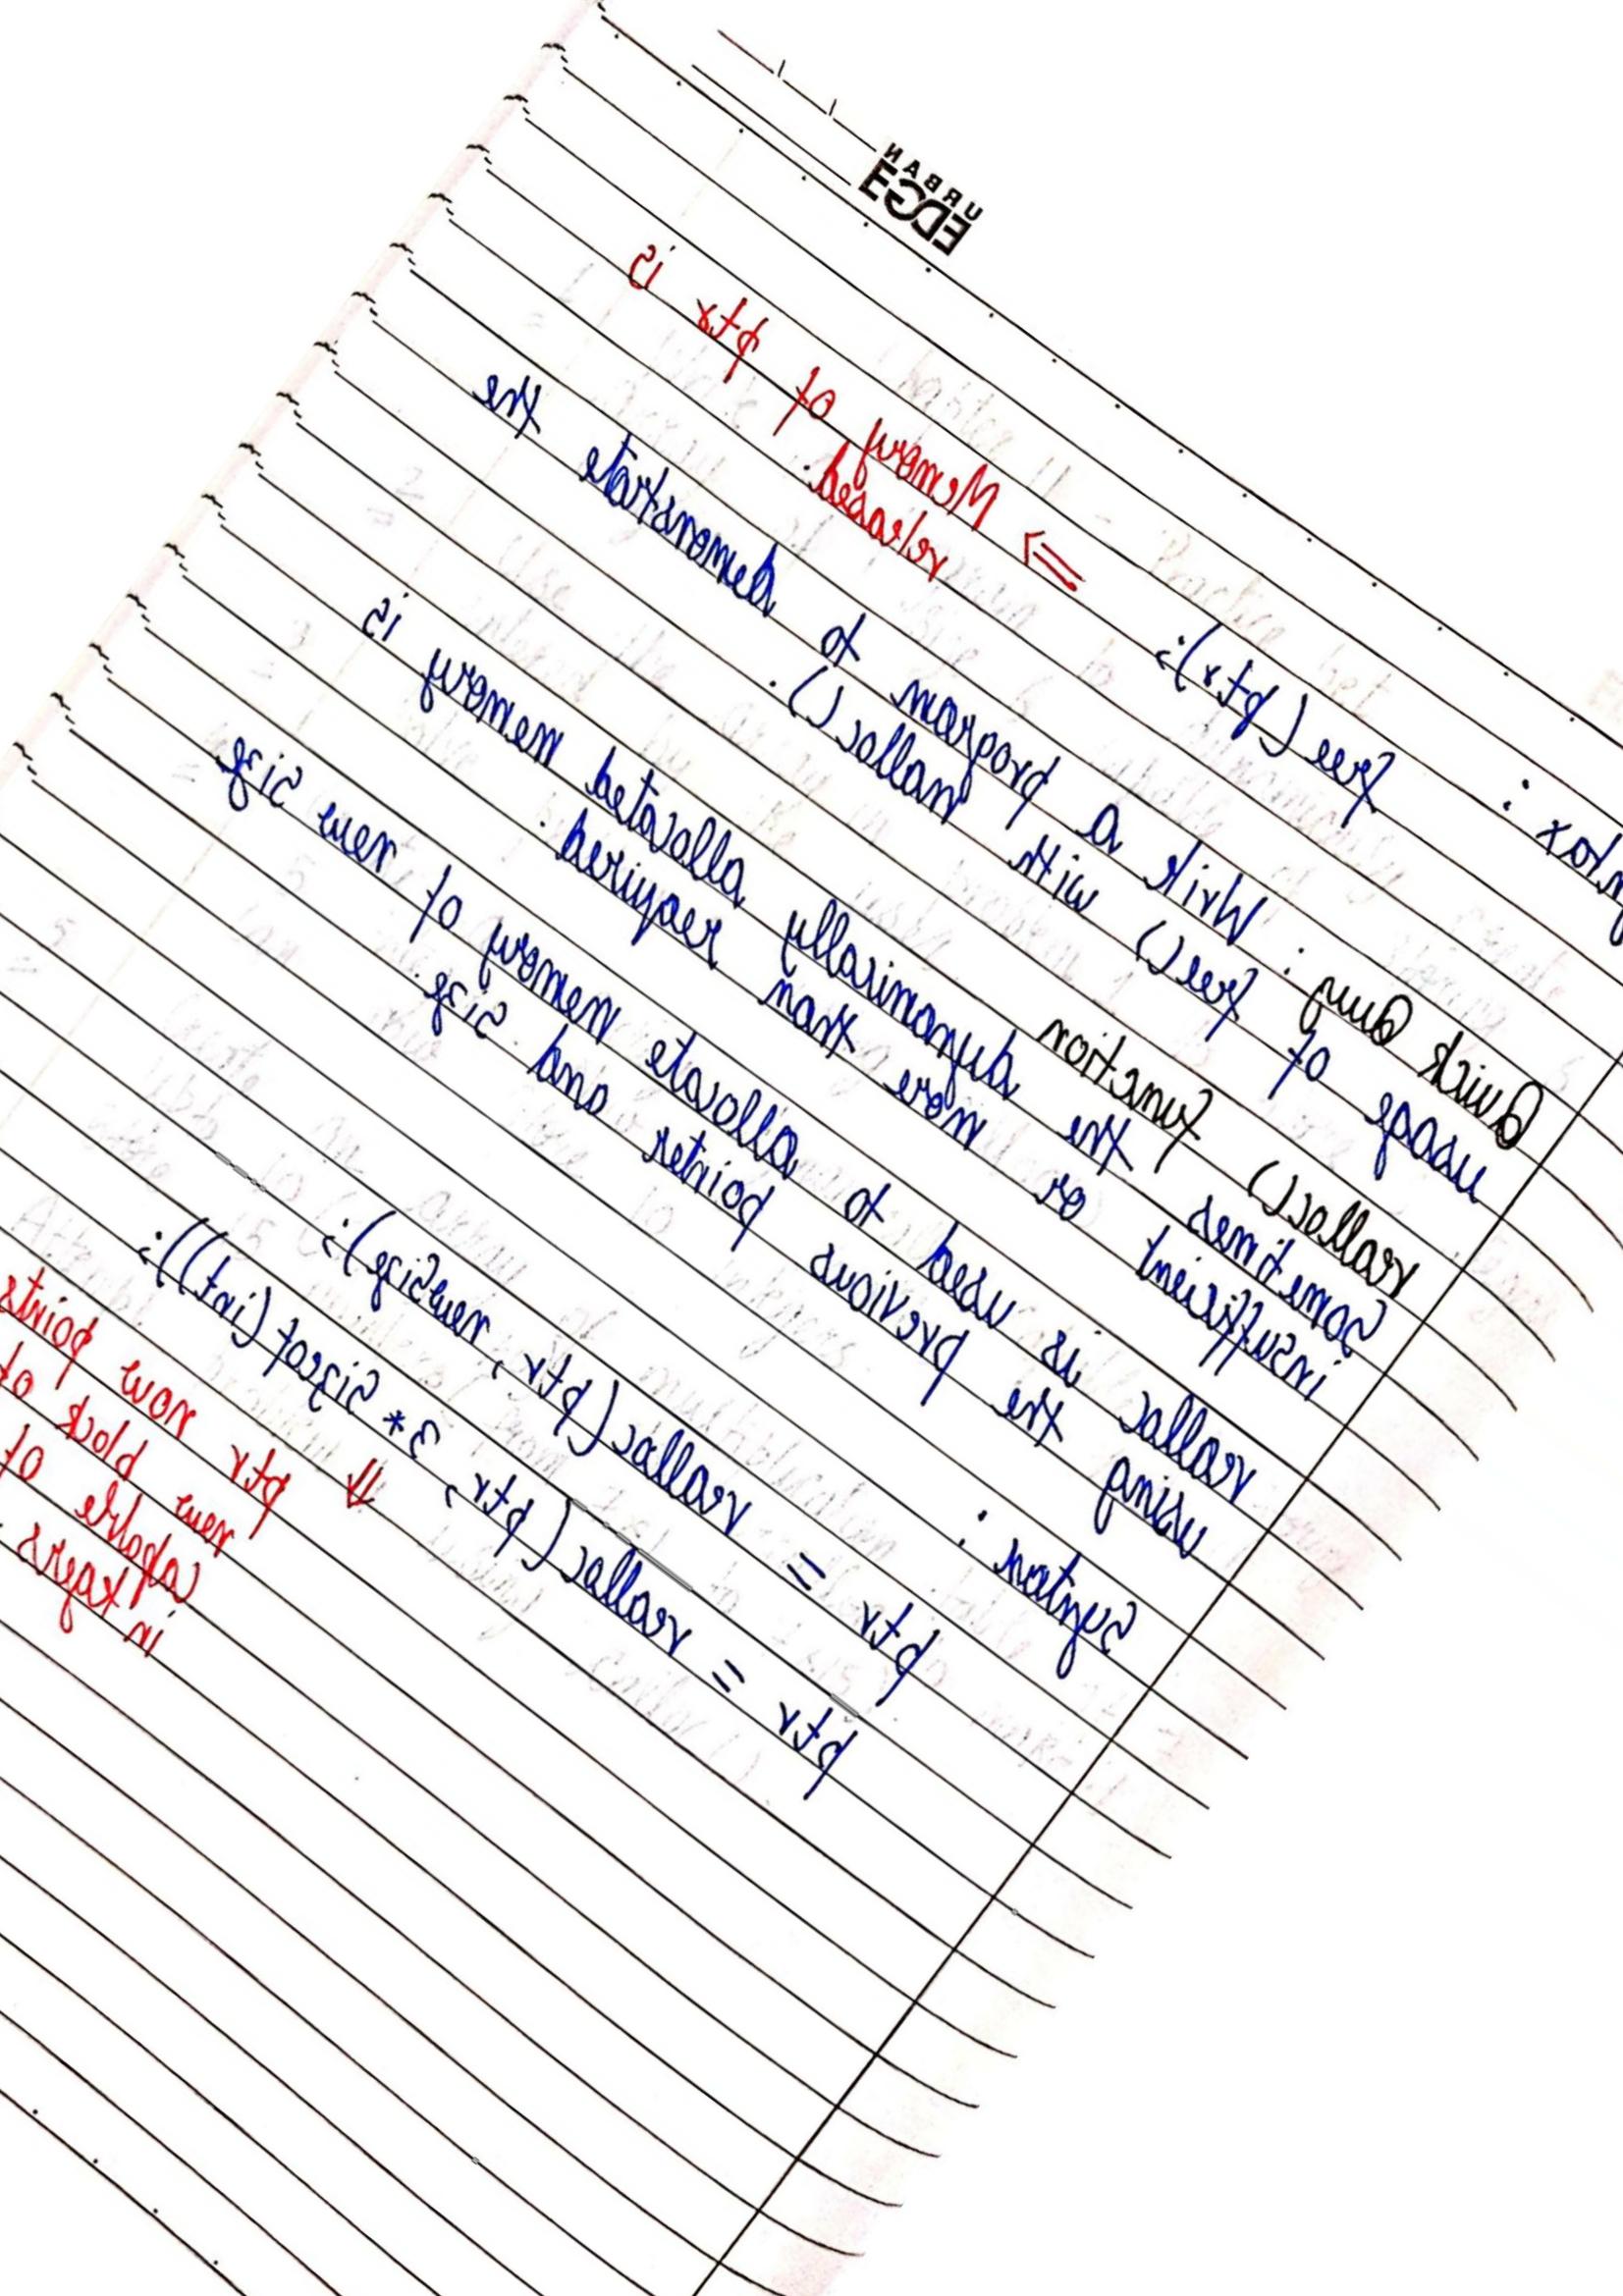 URBAN
EDGE
ntax :
free (ptr); => Memory of ptr is
released.
Quick Quiz : Write a program to demonstrate the
usage of free() with malloc().
realloc() function
Sometimes the dynamically allocated memory is
insufficient or more than required.
realloc is used to allocate memory of new size
using the previous pointer and size.
Syntax :
ptr = realloc (ptr, newSize);
ptr = realloc (ptr, 3* Sizeof (int));
⇓
ptr now points
new block of
capable of
in texers